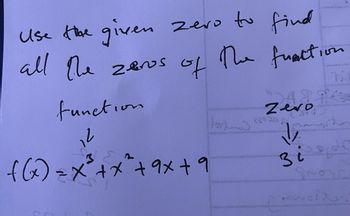 Use the given zero to find
all the zeros of the function
function zero
↓ ↓
f(x) = x³ + x² + 9x + 9 3i